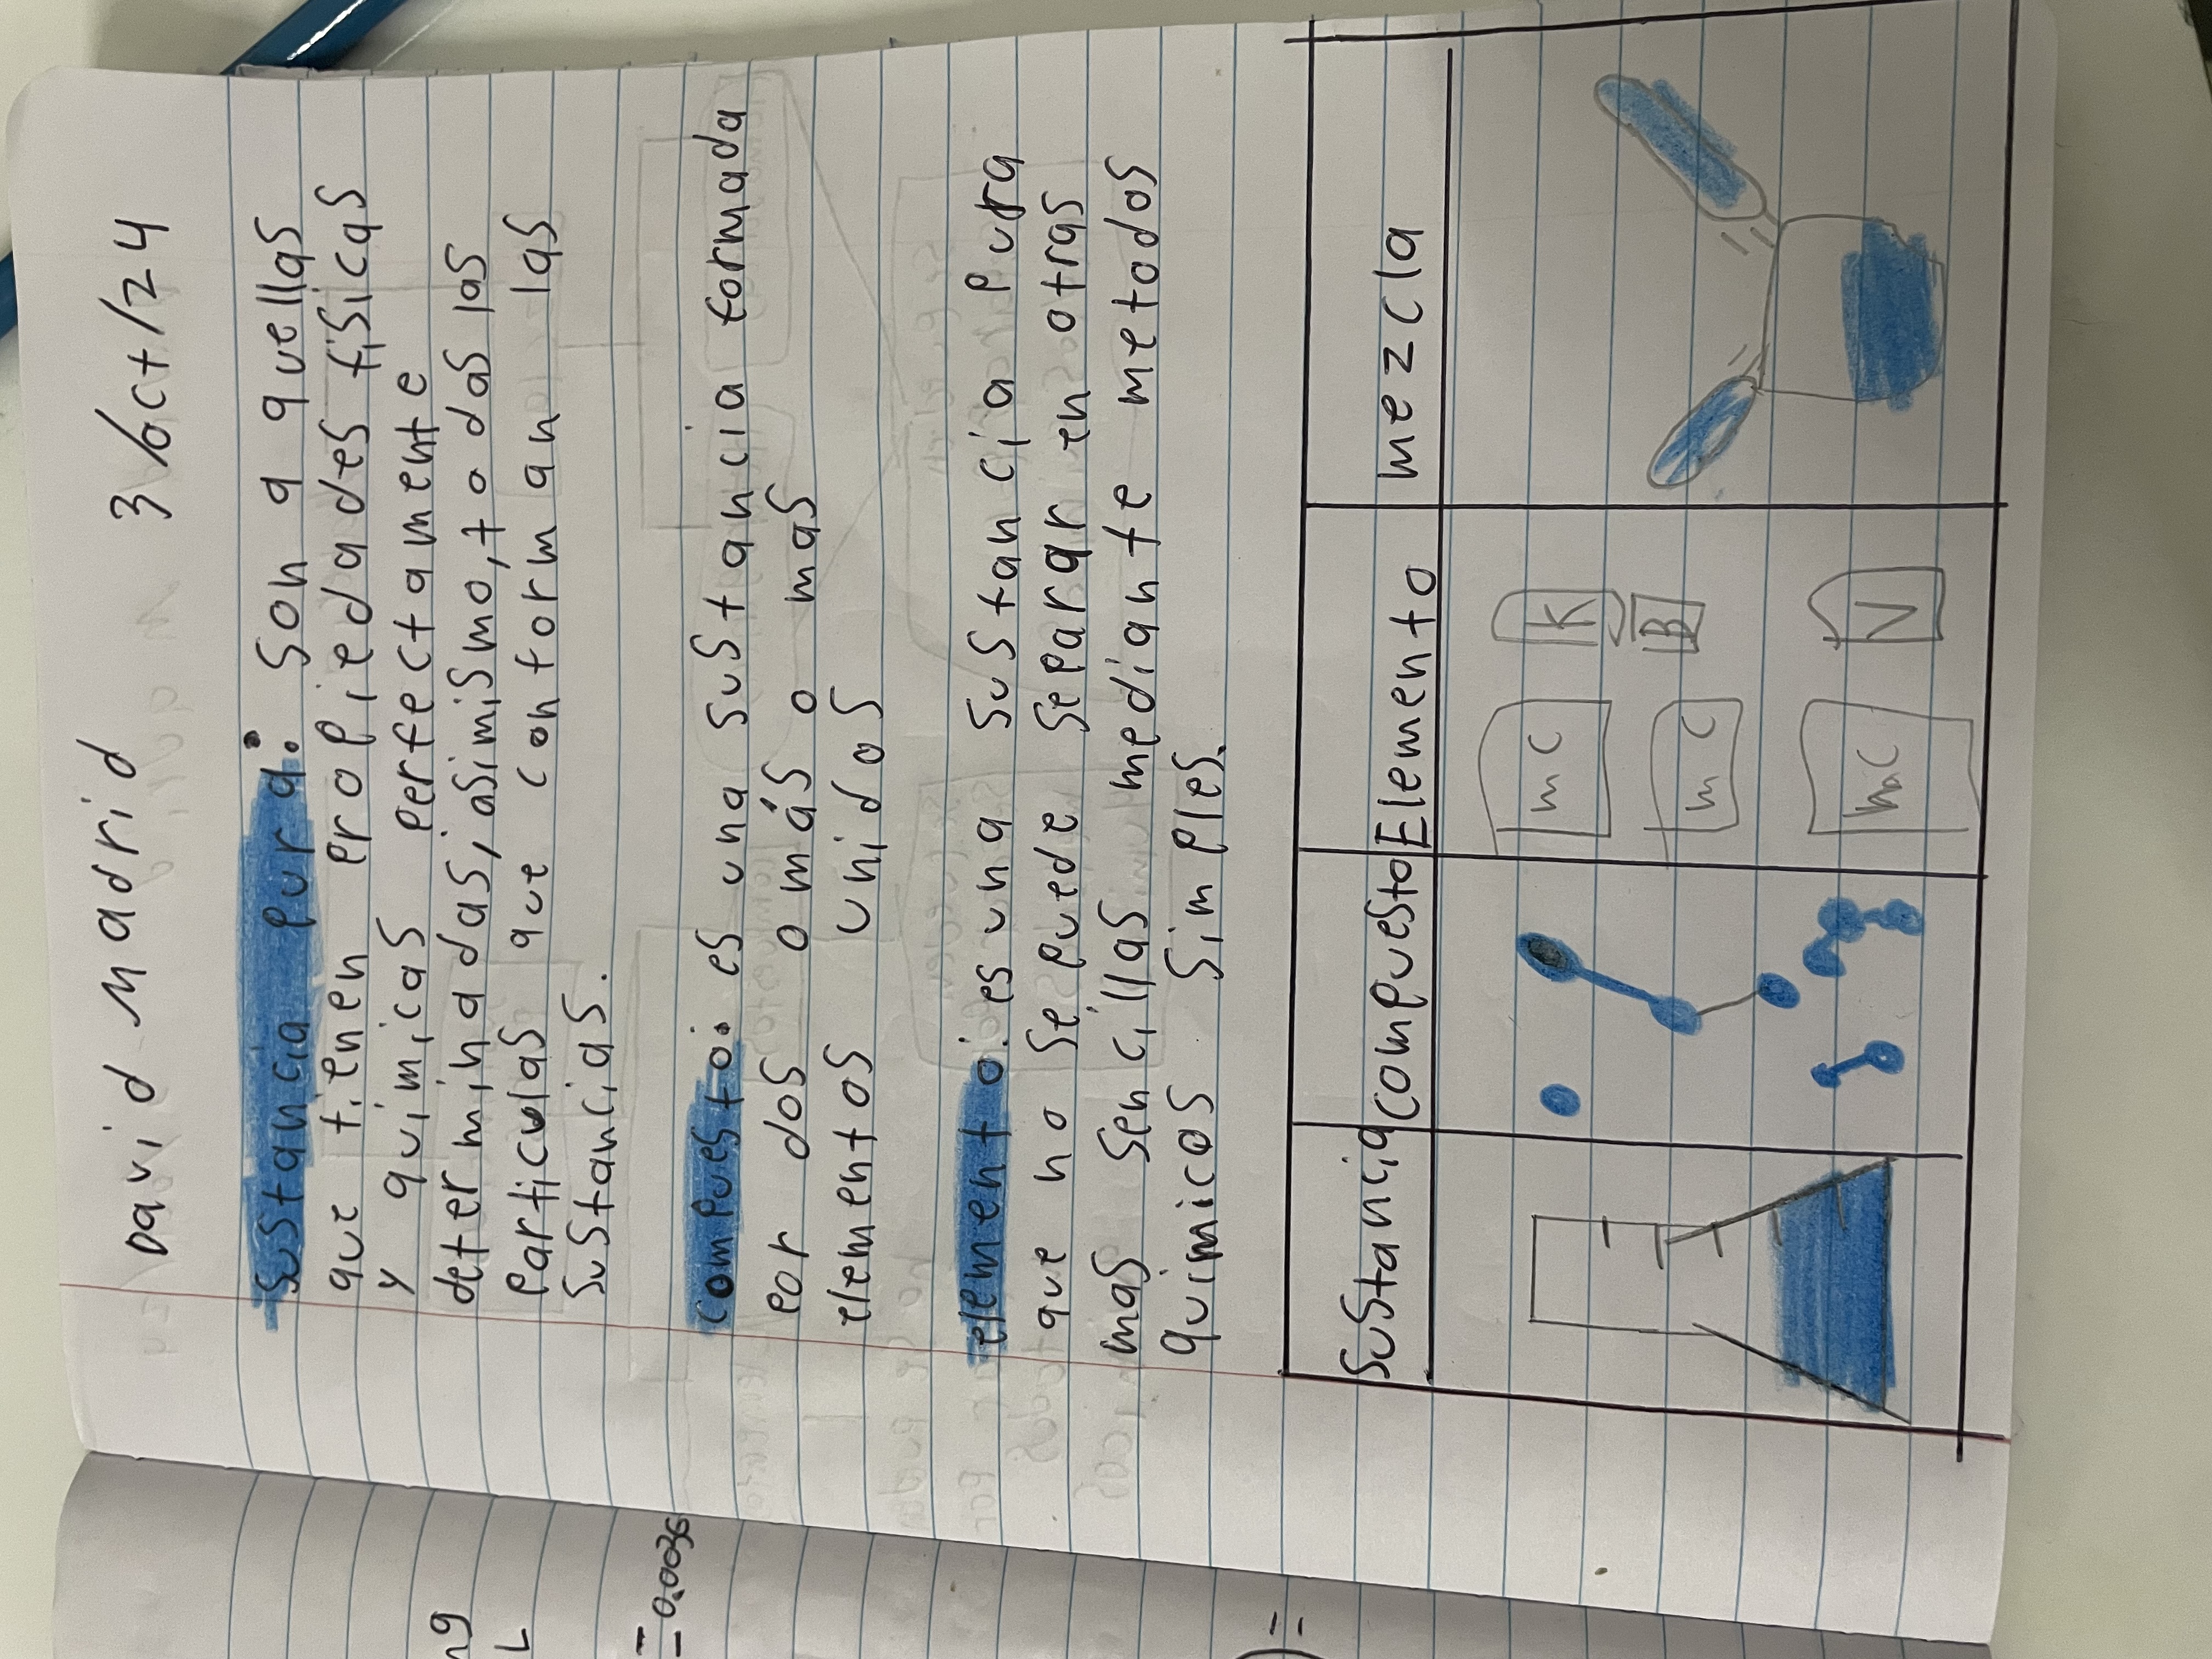 David Madrid 3/oct/24
Sustancia pura: Son a quellas
que tienen propiedades físicas
y quimicas perfectamente
determinadas, asimismo, todas las
particulas que conforman las
sustancias.
compuesto: es una sustancia formada
por dos o más o mas
elementos unidos
elemento: es una sustancia pura
que no se puede separar en otras
mas sencillas mediante metodos
quimicos simples.
Sustancia compuesto Elemento mezcla
mc K
mc B
V
ng
L
= 0.0036
=